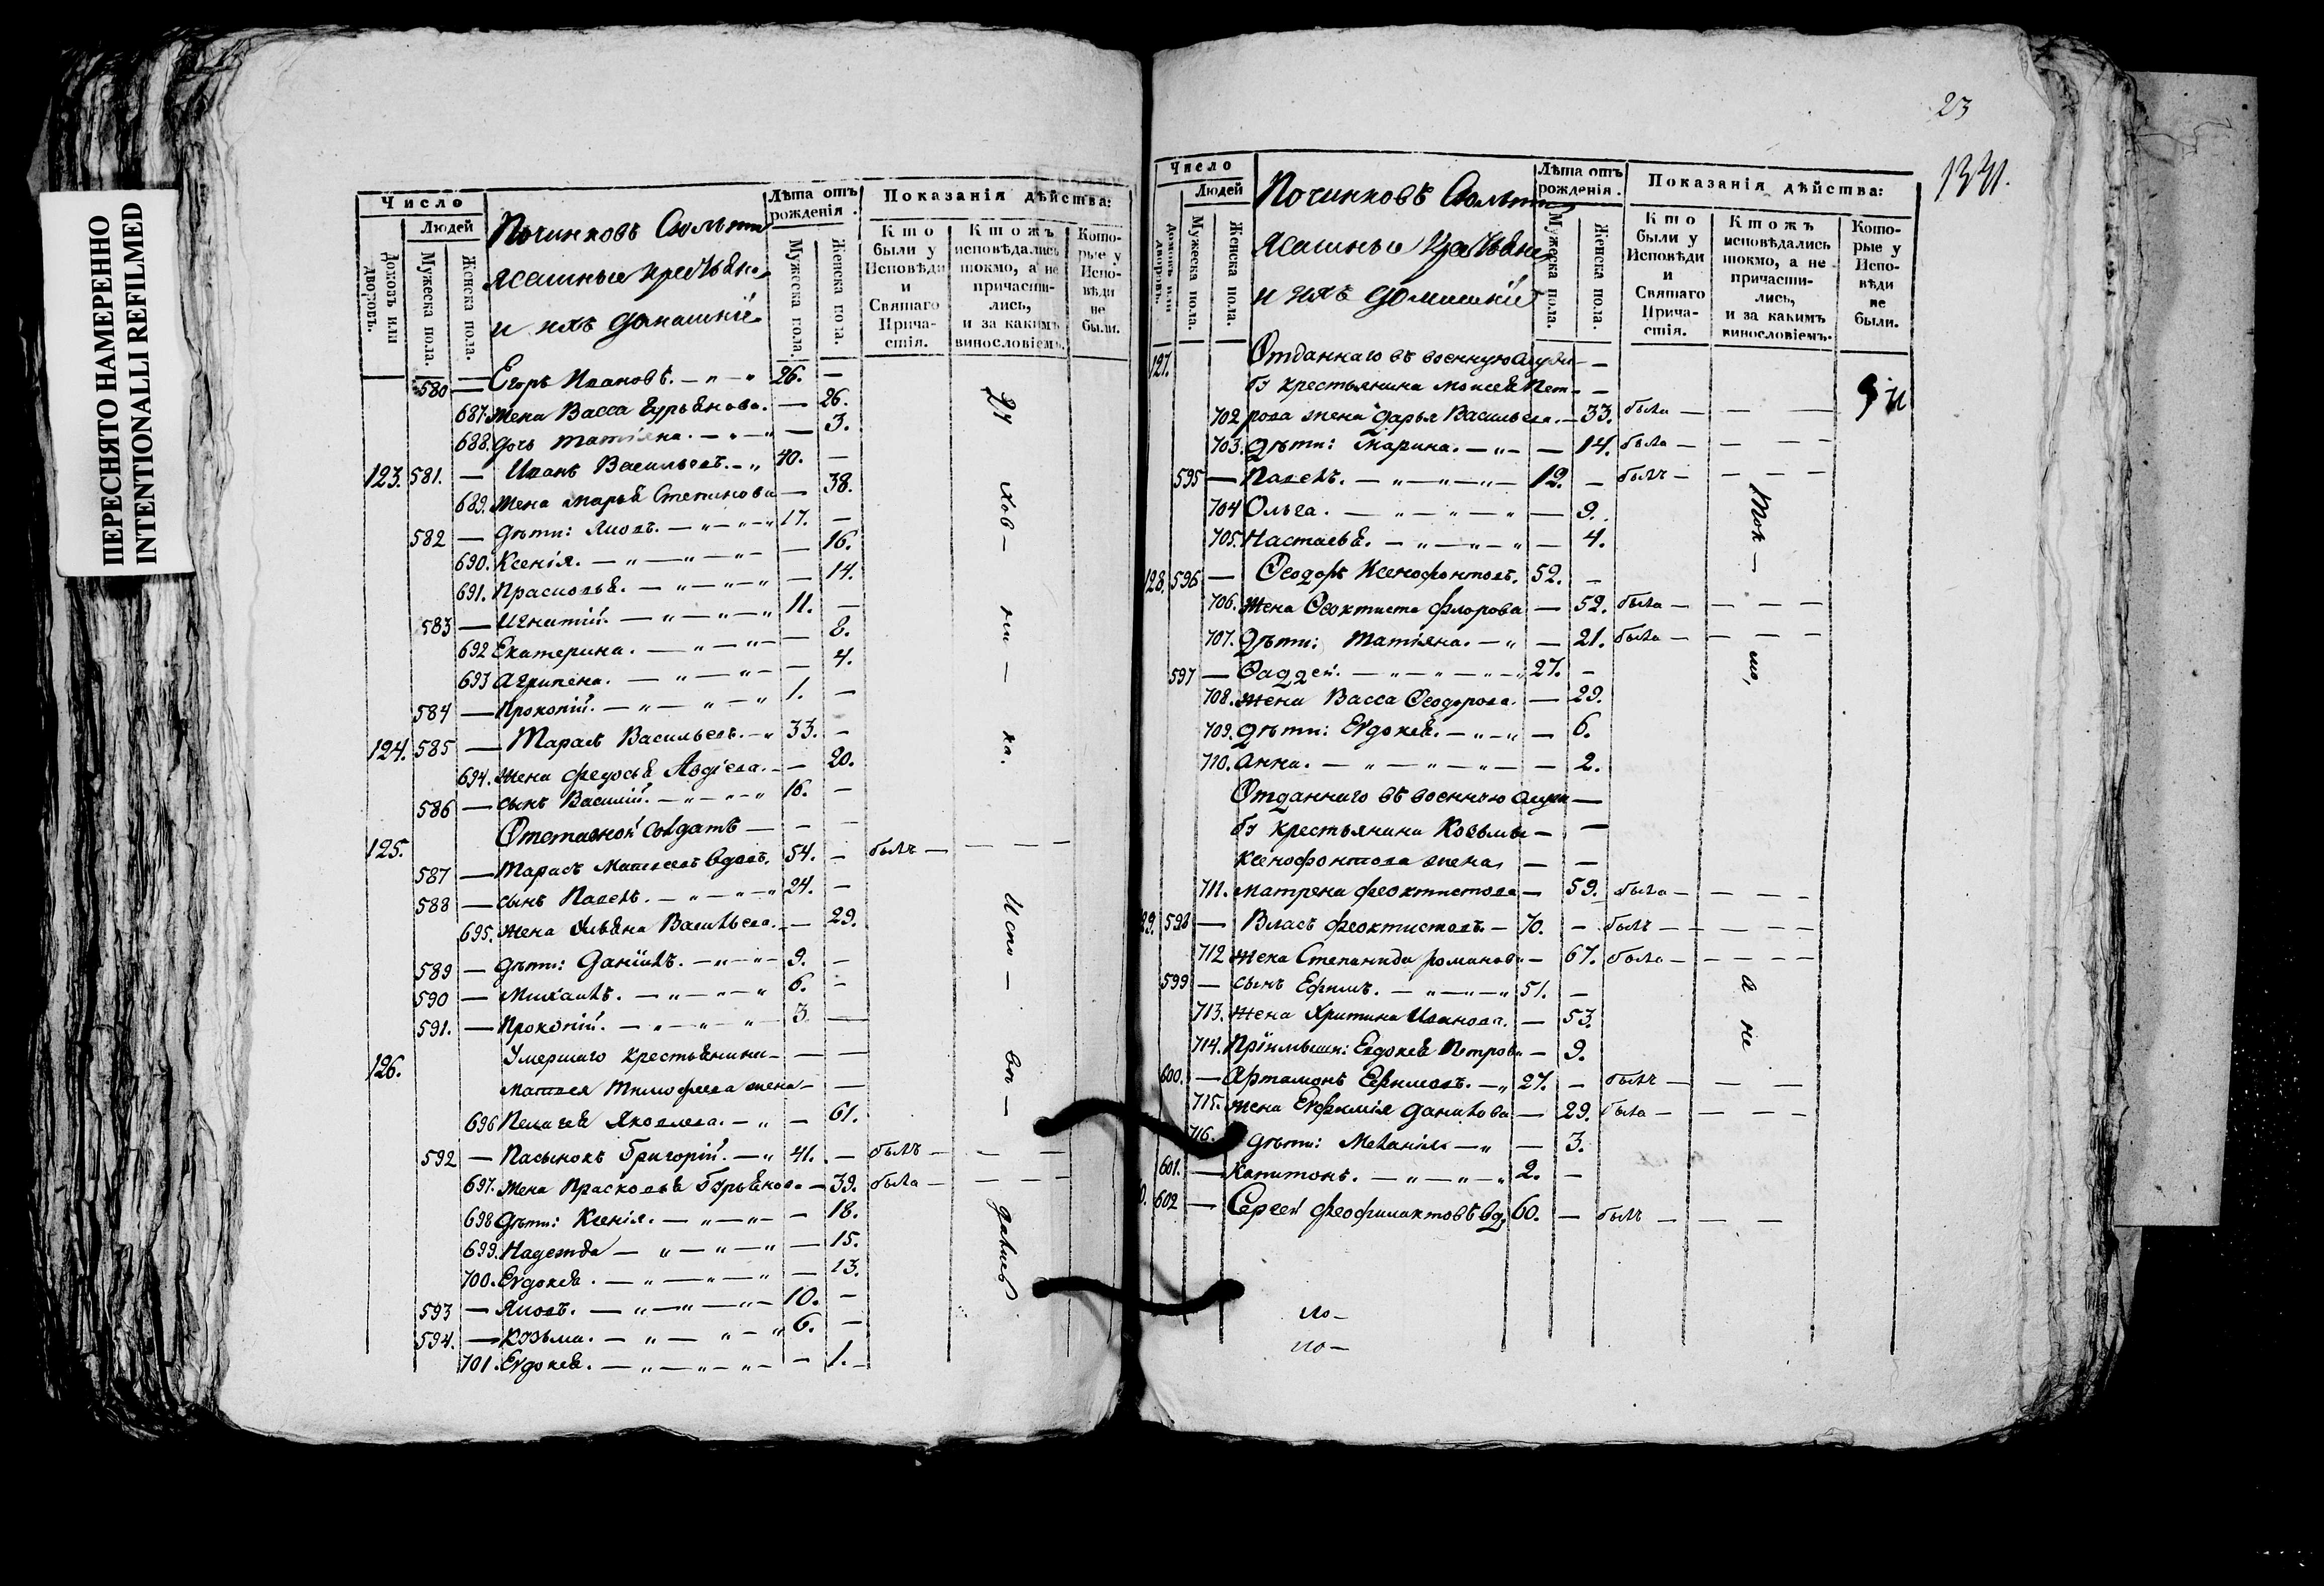 ПЕРЕСНЯТО НАМЕРЕННО
INTENTIONALLI REFILMED
Число
Людей
Домовъ или дворовъ.
Мужеска пола.
Женска пола.
Починковъ
ясашные крестьяне
и ихъ домашніе
Лѣта отъ рожденія.
Мужеска пола.
Женска пола.
Показанія дѣйства:
Кто были у Исповѣди и Святаго Причастія.
Ктожъ исповѣдались токмо, а не причастились, и за какимъ винословіемъ.
Которые у Исповѣди не были.
580 — Егоръ Ивановъ. 26. —
687. жена Васса Гурьянова. — 26.
688. дочь Татіяна. — 3.
123. 581. — Иванъ Васильевъ. 40. —
689. жена Марья Степанова — 38.
582 — дѣти: Яковъ. 17. —
690. Ксенія. — 16.
691. Прасковья. — 14.
583 — Игнатій. 11. —
692 Екатерина. — 8.
693 Агрипена. — 4.
584 — Прокопій. 1. —
124. 585 — Тарасъ Васильевъ. 33. —
694. жена Федосья Авдіева. — 20.
586 — сынъ Василій. 16. —
125. Отставной солдатъ — — —
587 — Тарасъ Матвеевъ вдовъ. 54. — былъ — — — —
588 — сынъ Павелъ. 24. —
695. жена Ульяна Васильева. — 29.
589 — дѣти: Даніилъ. 9. —
590 — Михаилъ. 6. —
591. — Прокопій. 3 —
126. Умершаго крестьянина — — —
Матвея Тимофеева жена — —
696 Пелагея Яковлева. — 61.
592 — Пасынокъ Григорій. 41. — былъ — — —
697. жена Прасковья Гурьянова — 39. была — — — —
698 дѣти: Ксенія. — 18.
699. Надежда — 15.
700. Евдокея. — 13.
593 — Яковъ. 10. —
594. — Козьма. 6. —
701. Евдокея. — 1. —
Ду
хов —
ни —
ка.
Испо —
вѣ —
дались
23
1341.
Число
Людей
Домовъ или дворовъ.
Мужеска пола.
Женска пола.
Починковъ
ясашные крестьяне
и ихъ домашніе
Лѣта отъ рожденія.
Мужеска пола.
Женска пола.
Показанія дѣйства:
Кто были у Исповѣди и Святаго Причастія.
Ктожъ исповѣдались токмо, а не причастились, и за какимъ винословіемъ.
Которые у Исповѣди не были.
127. Отданнаго въ военную служ — —
бу крестьянина Моисея Пет — —
702 рова жена Дарья Васильева. — 33. была — — —
703. дѣти: Марина. — 14. была — — —
595 — Павелъ. 12. — былъ — — — —
704 Ольга. — 9.
705. Настасья. — 4.
128. 596 — Ѳеодоръ Ксенофонтовъ. 52. —
706. жена Ѳеоктиста Флорова — 52. была — — — —
707. дѣти: Татіяна. — 21. была — — — —
597 — Ѳаддей. 27. —
708. жена Васса Ѳеодорова. — 29.
709. дѣти: Евдокея. — 6.
710. Анна. — 2.
Отданнаго въ военную служ —
бу крестьянина Козьмы — —
Ксенофонтова жена — —
711. Матрена Феоктистова — 59. была — — — —
29. 598 — Власъ Феоктистовъ — 70. — былъ — — — — —
712 жена Степанида Романова — 67. была — — — — —
599 — сынъ Ефимъ. 51. —
713. жена Хритина Иванова. — 53.
714. Пріимышъ: Евдокея Петрова — 9.
600. — Артамонъ Ефимовъ. 27. — былъ — — —
715. жена Евфимія Данилова — 29. была — — — —
716. дѣти: Меланія — 3.
601. — Капитонъ. 2. —
0. 602 — Сергей Феофилактовъ вд. 60. — былъ — — —
Ток —
мо,
а не